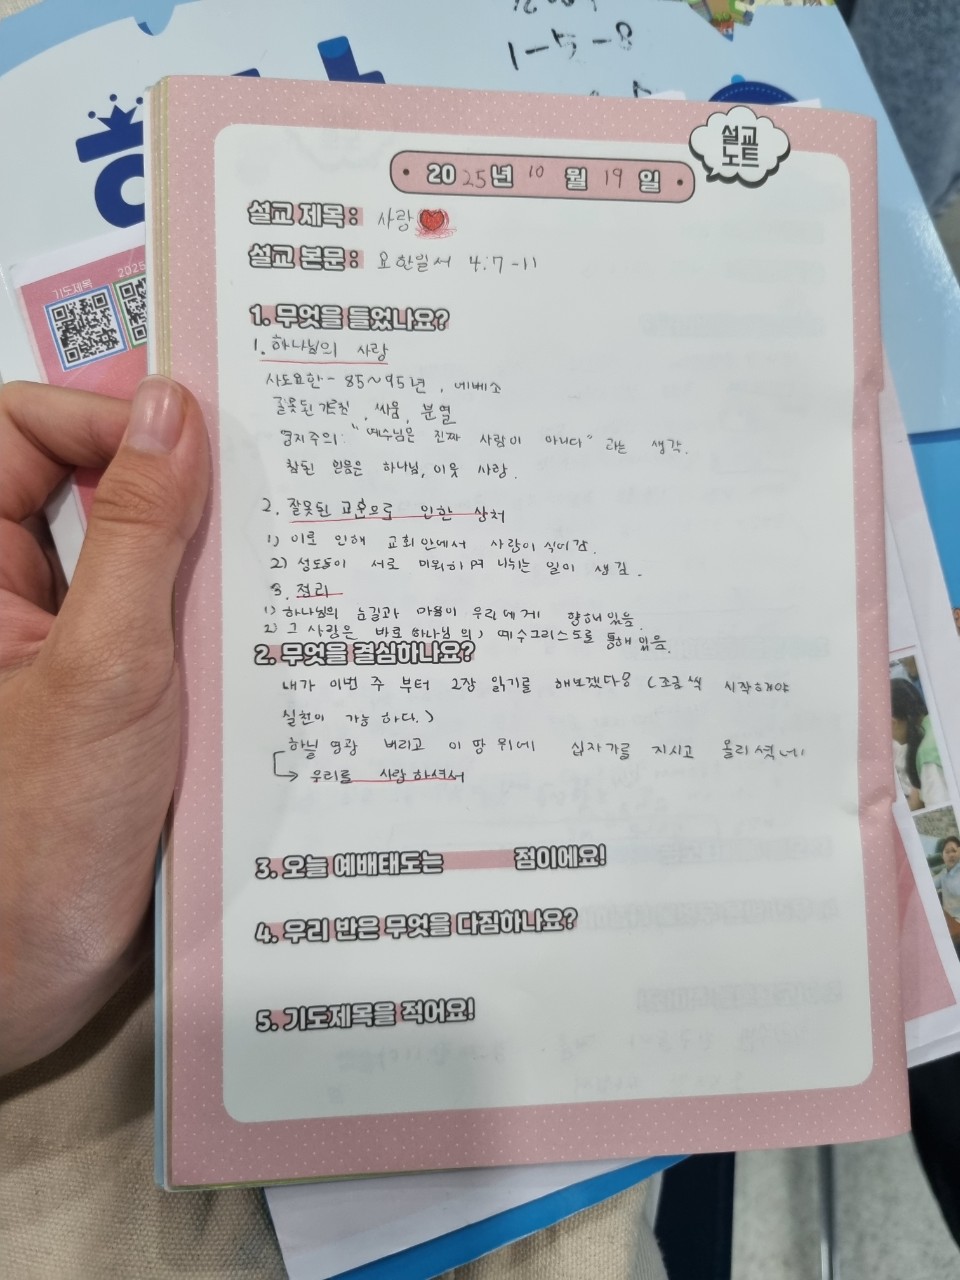 1-5-8
설교
노트
2025년 10월 19일
설교 제목: 사랑
설교 본문: 요한일서 4:7-11
기도제목
2025
1. 무엇을 들었나요?
1. 하나님의 사랑
사도요한 - 85~95년, 에베소
잘못된 가르침, 싸움, 분열
영지주의: "예수님은 진짜 사람이 아니다" 라는 생각.
참된 믿음은 하나님, 이웃 사랑.
2. 잘못된 교훈으로 인한 상처
1) 이로 인해 교회 안에서 사랑이 식어감.
2) 성도들이 서로 미워하며 나뉘는 일이 생김.
3. 정리
1) 하나님의 눈길과 마음이 우리에게 향해 있음.
2) 그 사랑은 바로 하나님의, 예수그리스도로 통해 있음.
2. 무엇을 결심하나요?
내가 이번 주 부터 2장 읽기를 해보겠다 (조금씩 시작해야
실천이 가능 하다.)
하늘 영광 버리고 이 땅 위에 십자가를 지시고 올리셨네
우리를 사랑하셔서
3. 오늘 예배태도는 점이에요!
4. 우리 반은 무엇을 다짐하나요?
5. 기도제목을 적어요!